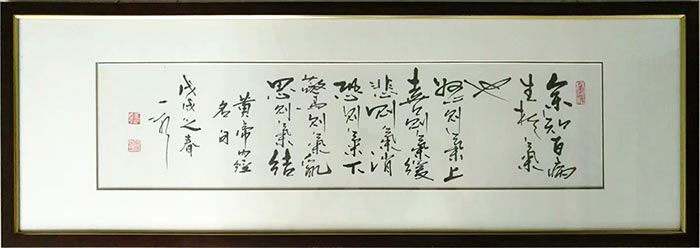 余知百病
生於氣
也
怒則氣上
喜則氣緩
悲則氣消
恐則氣下
驚則氣亂
思則氣結
黄帝内經
名句
戊戌之春